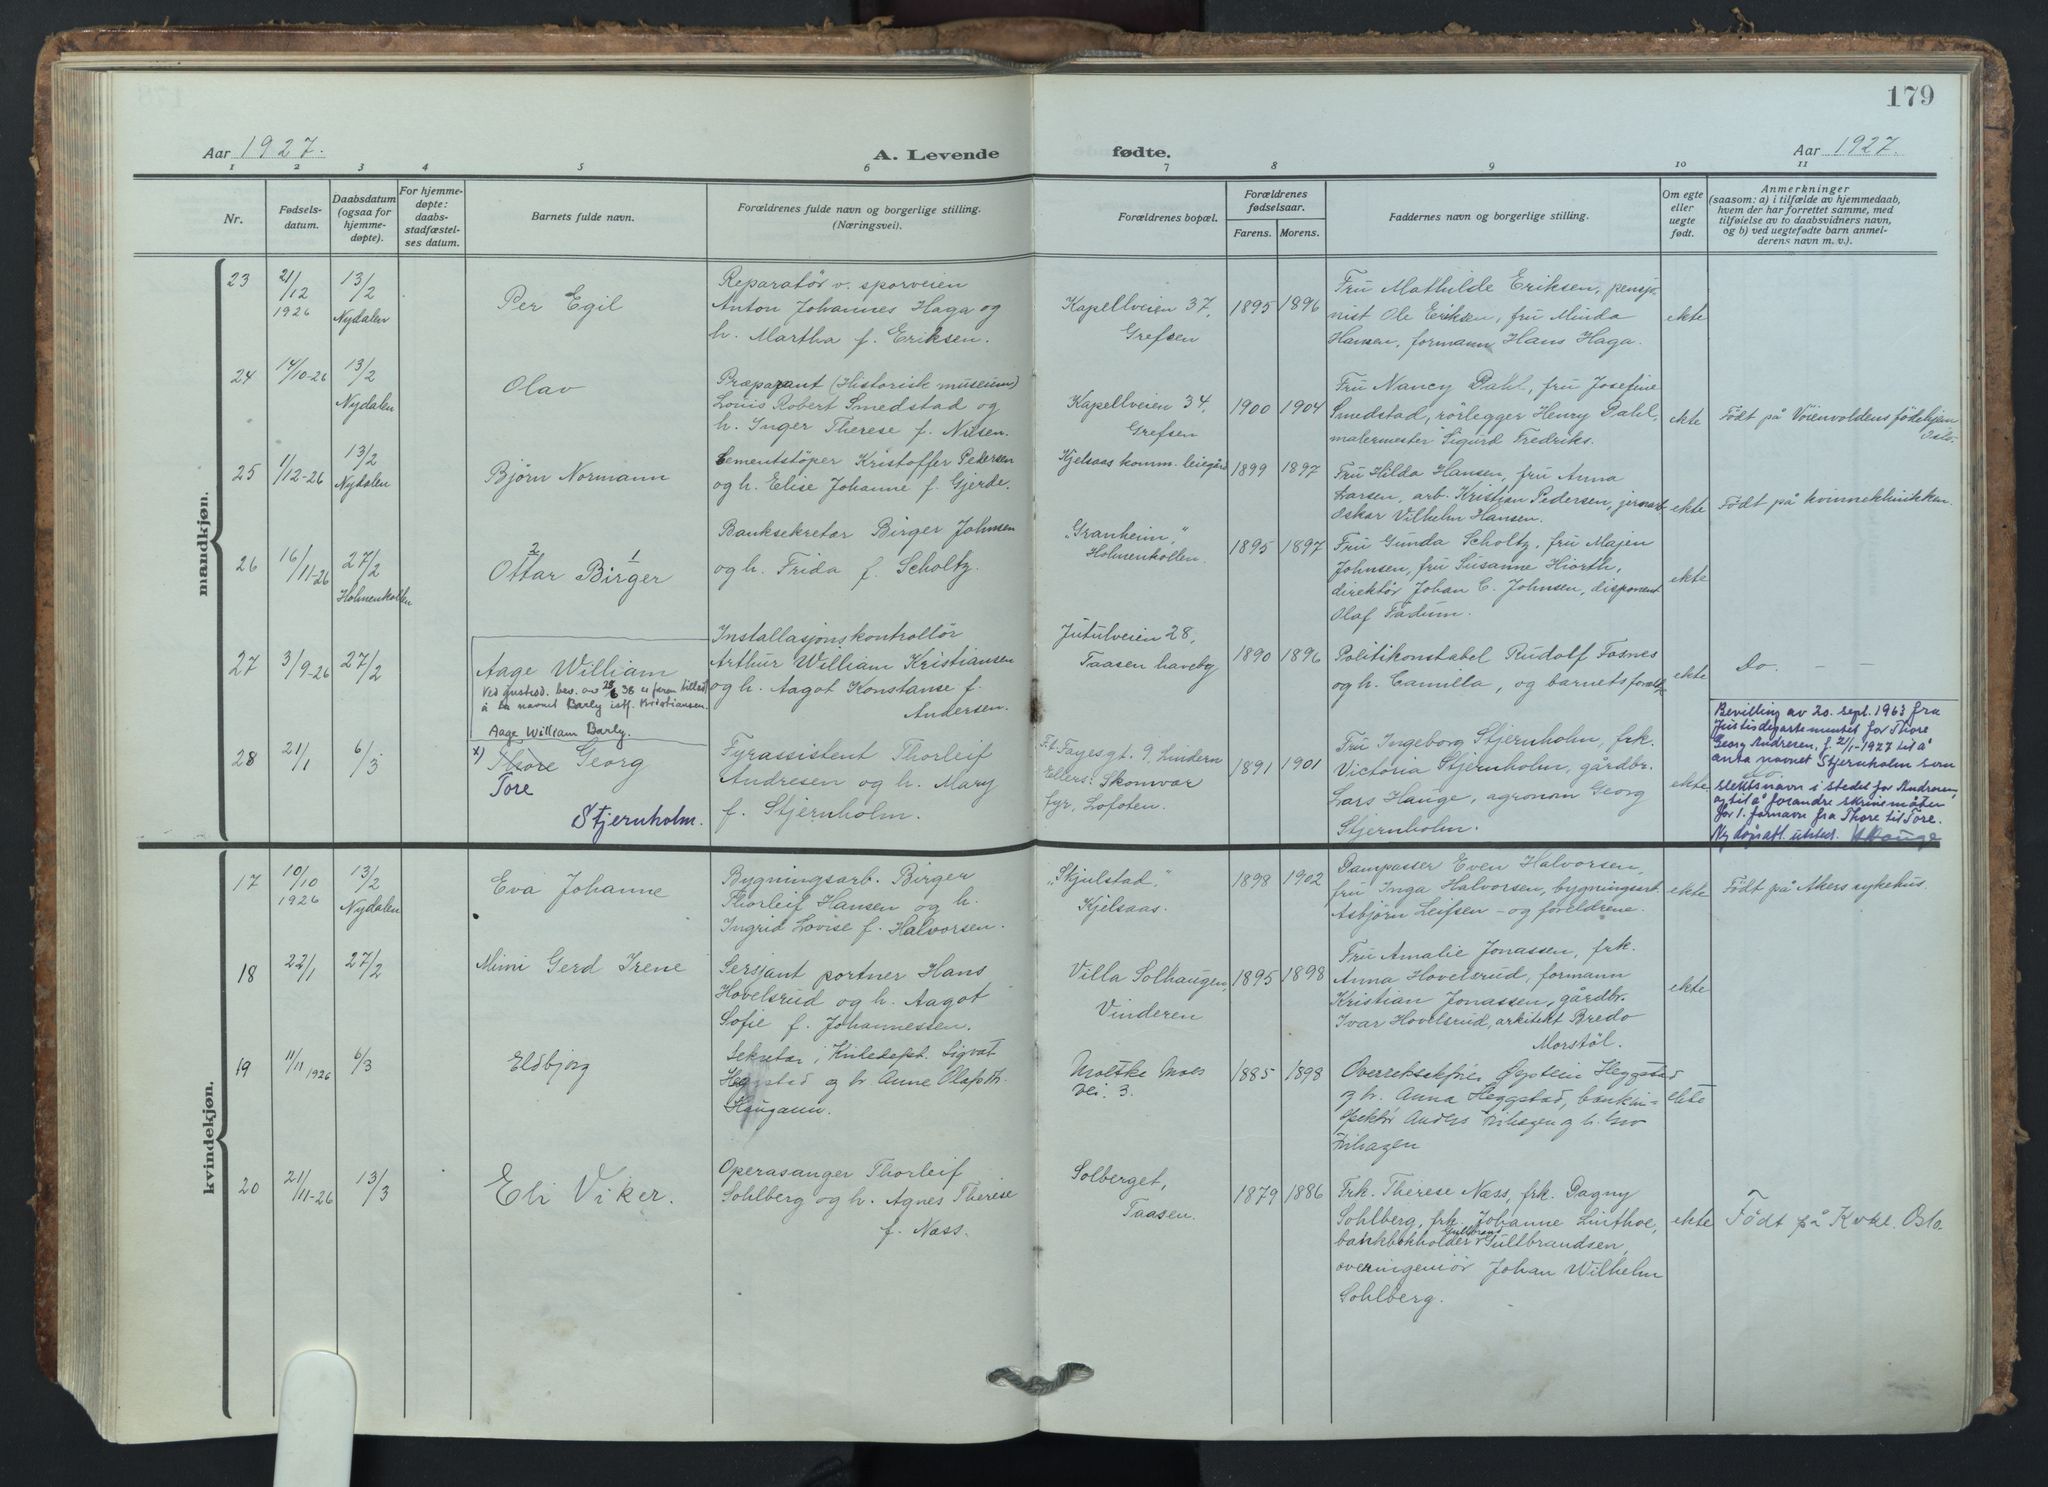 179
Aar 1927.
A. Levende
fødte.
Aar 1927.
1 2 3 4 5 6 7 8 9 10 11
Nr.
Fødsels-
datum.
Daabsdatum
(ogsaa for
hjemme-
døpte).
For hjemme-
døpte:
daabs-
stadfæstel-
ses datum.
Barnets fulde navn.
Forældrenes fulde navn og borgerlige stilling.
(Næringsvei).
Forældrenes bopæl.
Forældrenes
fødselsaar.
Farens. Morens.
Faddernes navn og borgerlige stilling.
Om egte
eller
uegte
født.
Anmerkninger
(saasom: a) i tilfælde av hjemmedaab,
hvem der har forrettet samme, med
tilføielse av to daabsvidners navn,
og b) ved uegtefødte barn anmel-
derens navn m. v.).
mandkjøn.
23
21/12
1926
13/2
Nydalen
Per Egil
Reparatør v. sporveien
Anton Johannes Haga og
h. Martha f. Eriksen.
Kapellveien 37,
Grefsen
1895 1896
Fru Mathilde Eriksen, pensjo-
nist Ole Eriksen, fru Minda
Hansen, formann Hans Haga.
ekte
24
14/10-26
13/2
Nydalen
Olav
Præparant (Historisk museum)
Louis Robert Smedstad og
h. Inger Therese f. Nilsen.
Kapellveien 34,
Grefsen
1900 1904
Fru Nancy Dahl, fru Josefine
Smedstad, rörlegger Henry Dahl,
malermester Sigurd Fredriks.
ekte
Födt på Vöienvoldens födehjem
Oslo.
25
1/12-26
13/2
Nydalen
Björn Normann
Sementstöper Kristoffer Pedersen
og h. Elise Johanne f. Gjerde.
Kjelsaas komm. leiegård
1899 1897
Fru Hilda Hansen, fru Anna
Larsen, arb. Kristian Pedersen, jernarb.
Oskar Vilhelm Hansen.
ekte
Födt på kvinneklinikken.
26
16/11-26
27/2
Holmenkollen
2 1
Ottar Birger
Banksekretær Birger Johnsen
og h. Frida f. Scholtz.
"Granheim",
Holmenkollen.
1895 1897
Fru Gunda Scholtz, fru Majen
Johnsen, fru Susanne Hiorth,
direktör Johan C. Johnsen, disponent
Olaf Fadum.
ekte
27
3/9-26
27/2
Aage William
Ved justisd. bev. av 28/6 38 er faren tilladt
å ta navnet Barly istf. Kristiansen.
Aage William Barly.
Installasjonskontrollör
Arthur William Kristiansen
og h. Aagot Konstanse f.
Andersen.
Jutulveien 28,
Taasen haveby
1890 1896
Politikonstabel Rudolf Fosnes
og h. Camilla, og barnets foreldre
ekte
do. — —
28
21/1
6/3
x) Thore Georg
Tore
Stjernholm.
Fyrassistent Thorleif
Andresen og h. Mary
f. Stjernholm.
F.t. Fayesgt. 9, Lindern
Ellers: Skomvær
fyr, Lofoten.
1891 1901
Fru Ingeborg Stjernholm, frk.
Victoria Stjernholm, gårdbr.
Lars Hauge, agronom Georg
Stjernholm.
ekte
do
Bevilling av 20. sept. 1963 fra
Justisdepartementet for Thore
Georg Andresen, f. 21/1-1927 til å
anta navnet Stjernholm som
slektsnavn i stedet for Andresen,
og til å forandre skrivemåten
for 1. fornavn fra Thore til Tore.
Ny dåpsatt. utsted. Hauge
kvindekjøn.
17
10/10
1926
13/2
Nydalen
Eva Johanne
Bygningsarb. Birger
Thorleif Hansen og h.
Ingrid Lovise f. Halvorsen.
"Skjulstad,"
Kjelsaas.
1898 1902
Dampasser Even Halvorsen,
fru Inga Halvorsen, bygningsarb.
Asbjörn Leifsen – og foreldrene.
ekte
Födt på Akers sykehus.
18
22/1
27/2
Mimi Gerd Irene
Sersjant portner Hans
Hovelsrud og h. Aagot
Sofie f. Johannessen.
Villa Solhaugen,
Vinderen
1895 1898
Fru Amalie Jonassen, frk.
Anna Hovelsrud, formann
Kristian Jonassen, gårdbr.
Ivar Hovelsrud, arkitekt Bredo
Morstöl.
ekte
19
11/11 1926
6/3
Eldbjørg
Sekretær i Kirkedept. Sigvat
Heggstad og h. Anne Olafsdtr.
Haugann.
Moltke Moes
vei. 3.
1885 1898
Overrettssakfører Øystein Heggstad
og h. Anna Heggstad, bankin-
spektør Anders Nihagen og h. Gro
Nihagen
ekte
20
21/11-26
13/3
Eli Viker.
Operasanger Thorleif
Sohlberg og h. Agnes Therese
f. Næss.
Solberget,
Taasen.
1879 1886
Frk. Therese Næss, frk. Dagny
Sohlberg, frk. Johanne Linthoe,
Gullbrand
bankbokholder Gullbrandsen,
overingeniör Johan Wilhelm
Sohlberg.
ekte
Födt på Kvkl. Oslo